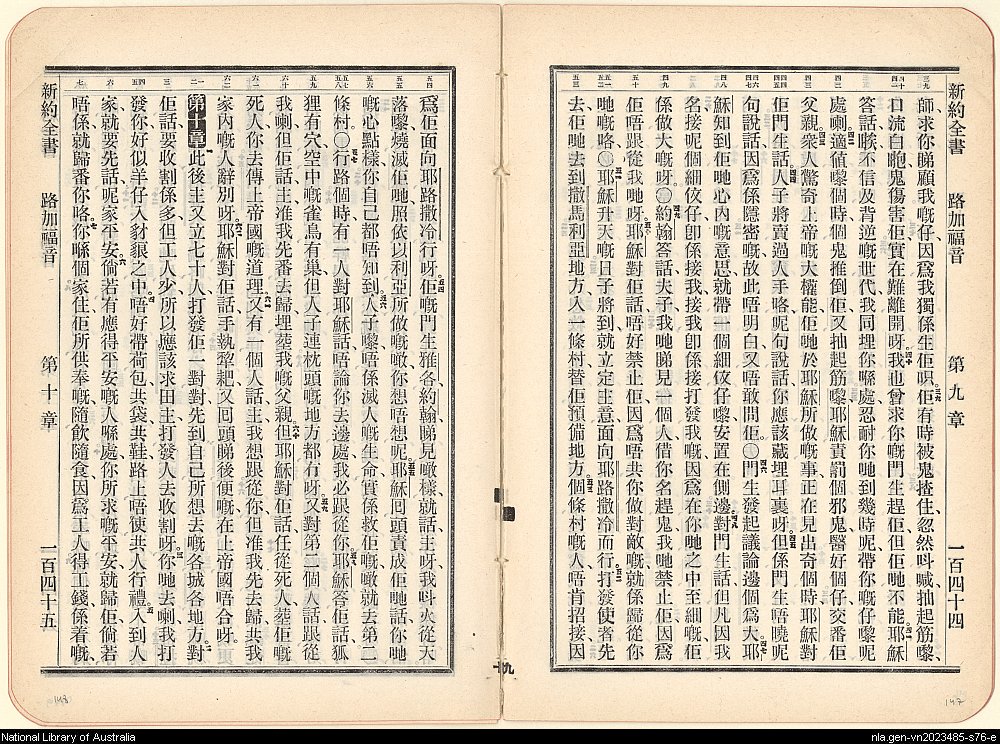 新約全書 路加福音 第九章 一百四十四
師求你睇顧我嘅仔因爲我獨係生佢呮佢有時被鬼揸住忽然呌喊抽起筋嚟
口流白咆鬼傷害佢實在難離開呀我也曾求你嘅門生趕佢但佢哋不能耶穌
答話唉不信及背逆嘅世代我同埋你喺處忍耐你哋到幾時呢帶你嘅仔嚟呢
處喇適值嚟個時個鬼推倒佢又抽起筋嚟耶穌責罰個邪鬼醫好個仔交番佢
父親衆人驚奇上帝嘅大權能佢哋於耶穌所做嘅事正在見出奇個時耶穌對
佢門生話人子將賣過人手咯呢句說話你應該藏埋耳裏呀但係門生唔曉呢
句說話因爲係隱密嘅故此唔明白又唔敢問佢○門生發起議論邊個爲大耶
穌知到佢哋心內嘅意思就帶一個細伩仔嚟安置在側邊對門生話但凡因我
名接呢個細伩仔卽係接我接我卽係接打發我嘅因爲在你哋之中至細嘅
係做大嘅呀○約翰答話夫子我哋睇見一個人借你名趕鬼我哋禁止佢因爲
佢唔跟從我哋呀耶穌對佢話唔好禁止佢因爲唔共你做對敵嘅就係歸從你
哋嘅咯○耶穌升天嘅日子將到就立定主意面向耶路撒冷而行打發使者先
去佢哋去到撒馬利亞地方入一條村替佢預備地方個條村嘅人唔肯招接因
爲佢面向耶路撒冷行呀佢嘅門生雅各約翰睇見噉樣就話主呀我呌火從天
落嚟燒滅佢哋照依以利亞所做嘅噉你想唔想呢耶穌囘頭責成佢哋話你哋
嘅心點樣你自己都唔知到人子嚟唔係滅人嘅生命實係救佢嘅噉就去第二
條村○行路個時有一人對耶穌話唔論你去邊處我必跟從你耶穌答佢話狐
狸有穴空中嘅雀鳥有巢但人子連枕頭嘅地方都冇呀又對第二個人話跟從
我喇但佢話主准我先番去歸埋葬我嘅父親但耶穌對佢話任從死人葬佢嘅
死人你去傳上帝國嘅道理又有一個人話主我想跟從你但准我先去歸共我
家內嘅人辭別呀耶穌對佢話手執犂耙又囘頭睇後便嘅在上帝國唔合呀
第十章此後主又立七十人打發佢一對對先到自己所想去嘅各城各地方對
佢話要收割係多但工人少所以應該求田主打發人去收割呀你哋去喇我打
發你好似羊仔入豺狼之中唔好帶荷包共袋共鞋路上唔使共人行禮入到人
家就要先話呢家平安倘若有應得平安嘅人喺處你所求嘅平安就歸佢倘若
唔係就歸番你咯你喺個家住佢所供奉嘅隨飲隨食因爲工人得工錢係着嘅
新約全書 路加福音 第十章 一百四十五
148
147
National Library of Australia
nla.gen-vn2023485-s76-e